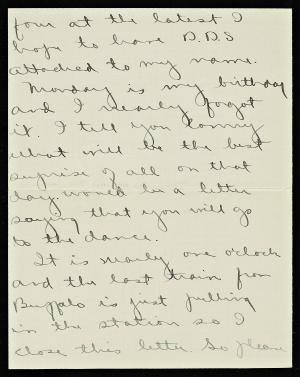 four at the latest I
hope to have D.D.S
attached to my name.
Monday is my birthday
and I nearly forgot
it. I tell you
what will be the best
surprise of all on that
day. would be a letter
saying that you will go
to the dance.
It is nearly one o'clock
and the last train from
Buffalo is just pulling
in the station so I
close this letter. So please